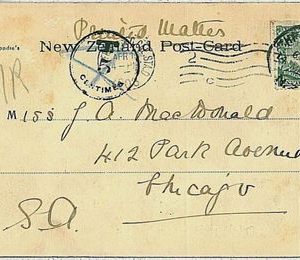 Printed Matter
New Zealand Post-Card
CENTIMES
Miss J. A. MacDonald
412 Park Avenue
Chicago
S.A.